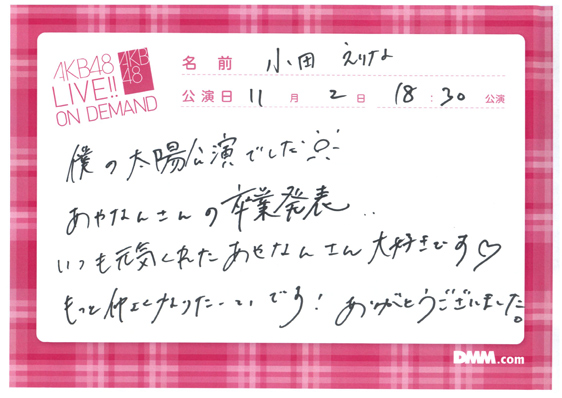 AKB48
LIVE!!
ON DEMAND
AKB
48
名前 小田 えりな
公演日 11月2日 18:30公演
僕の太陽公演でした
あやなんさんの卒業発表..
いつも元気くれたあやなんさん大好きです♡
もっと仲よくなりたーいです! ありがとうございました。
DMM.com